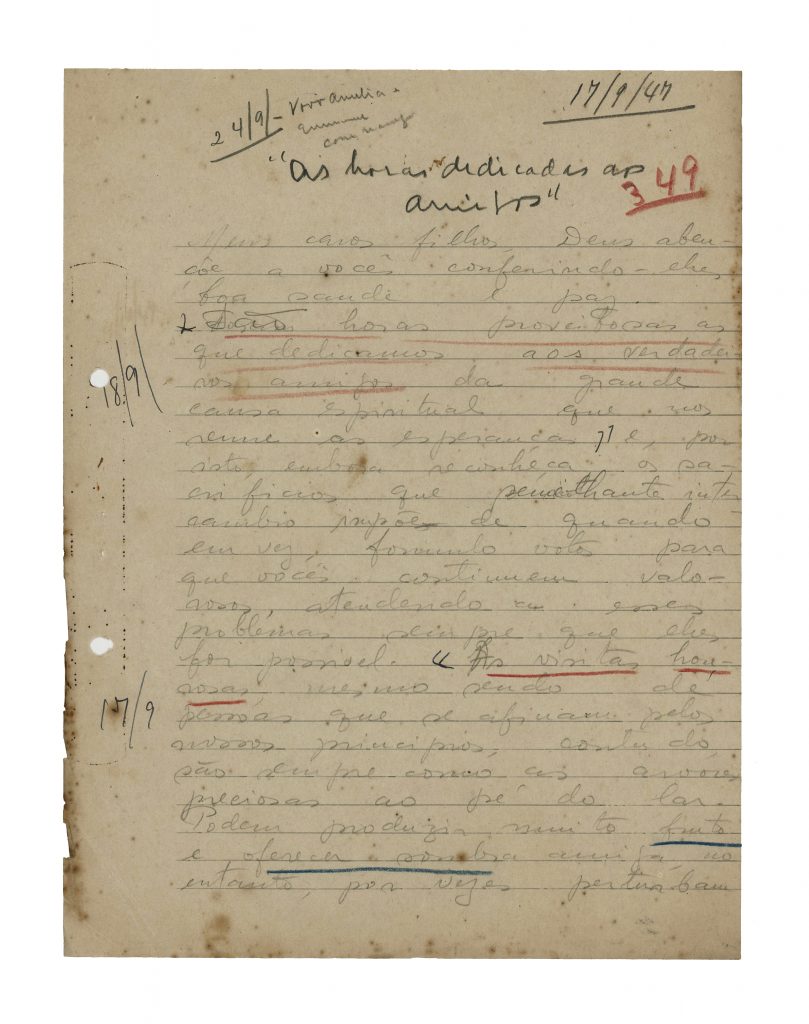 17/9/47
24/9/- Vovó Amelia -
"As horas dedicadas aos
amigos"
349
Meus caros filhos, Deus aben-
çõe a vocês conferindo-lhes
boa saude e paz.
São horas proveitosas as
que dedicamos aos verdadei-
ros amigos da grande
18/9/
causa espiritual que nos
reune as esperanças" e, por
isto, embora reconheça os sa-
crificios que semelhante inter
cambio impõe de quando
em vez, formulo votos para
que vocês continuem valo-
rosos, atendendo a esses
problemas sempre que lhes
for possivel. "As visitas hon-
rosas, mesmo sendo de
17/9
pessoas que se afinam pelos
nossos principios, contudo,
são sempre como as arvores
preciosas ao pé do lar.
Podem produzir muito fruto
e oferecer sombra amiga, no
entanto, por vezes perturbam